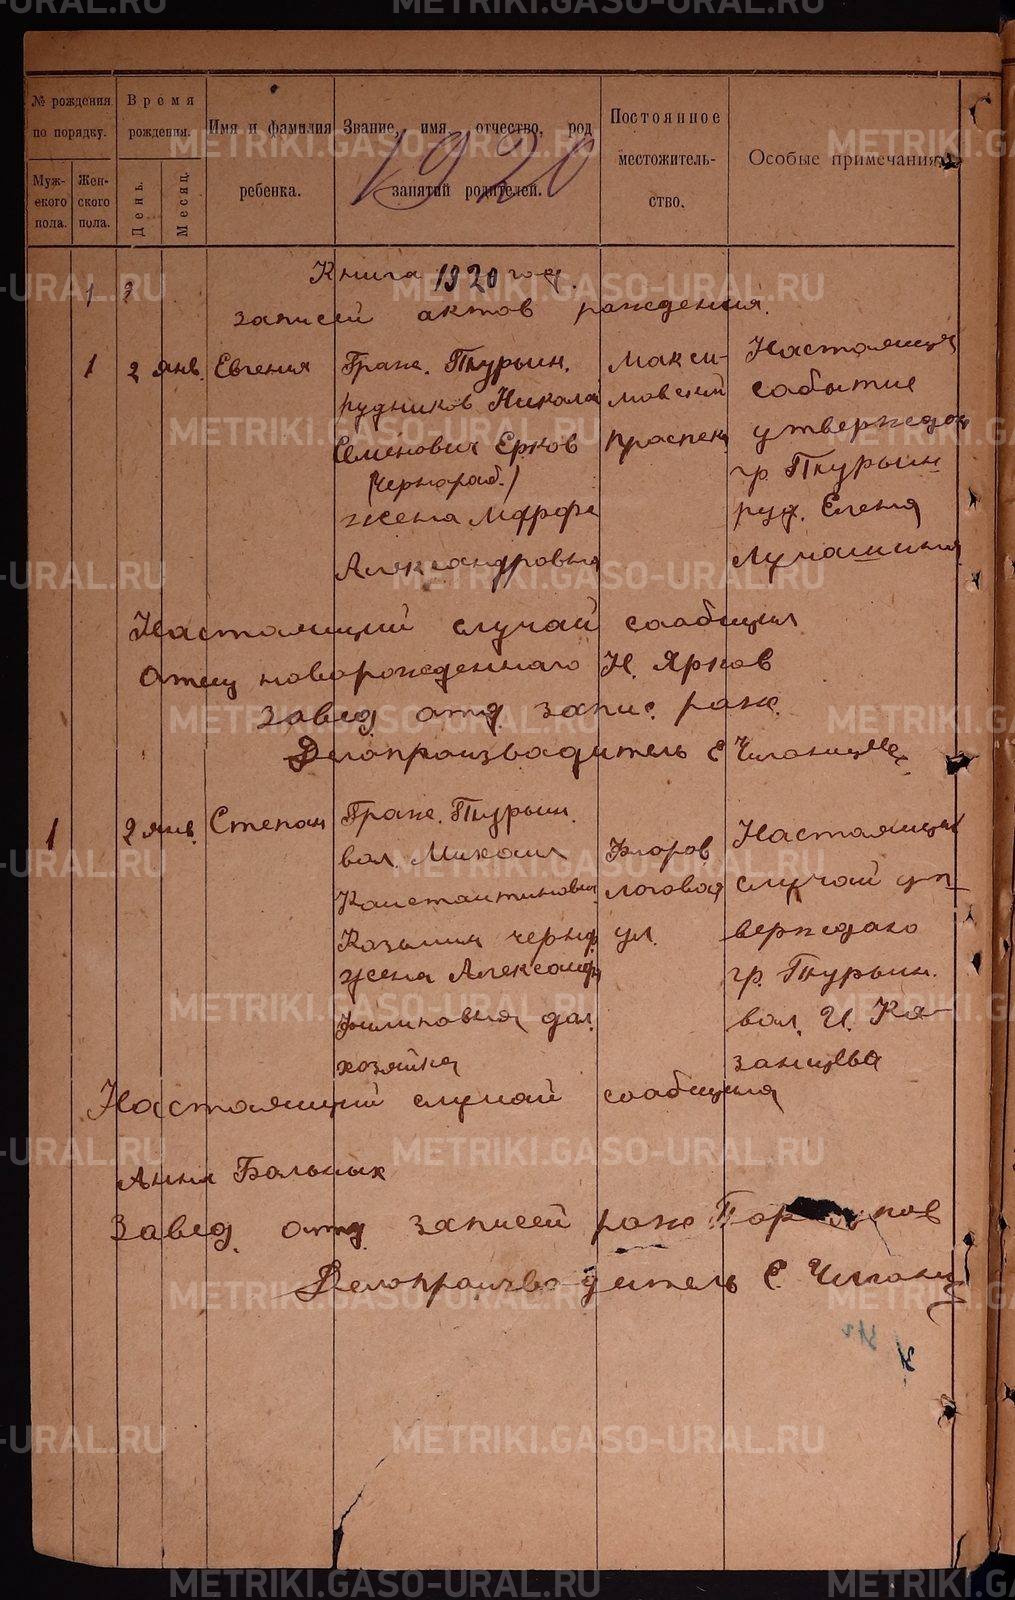 № рождения по порядку.
Время рождения.
Имя и фамилия ребенка.
Звание, имя, отчество, род занятий родителей.
Постоянное местожительство.
Особые примечания.
Мужского пола.
Женского пола.
День.
Месяц.
1920
Книга 1920 год.
1 2
записей актов рождения.
1 2 янв. Евгения Граж. Турьин. Макси- Настоящее
рудников Николай мовский событие
Семенович Ерков проспект утверждаю
(чернораб.) гр. Турьин
жена Марфа руд. Елена
Александровна
Настоящий случай сообщил
отец новорожденнаго Н. Ярков
Завед. отд. запис. рож.
Делопроизводитель Е
1 2 янв. Степан Граж. Турьин. Настоящий
вол. Михаил Флоров
Константинович логовая случай ут-
Козьмин черн. ул. верждаю
жена Александра гр. Турьин.
Филиповна дом. вол. И. Ка-
хозяйка занцева
Настоящий случай сообщила
Анна Больных
Завед. отд. записей рож
Делопроизводитель Е.
METRIKI.GASO-URAL.RU